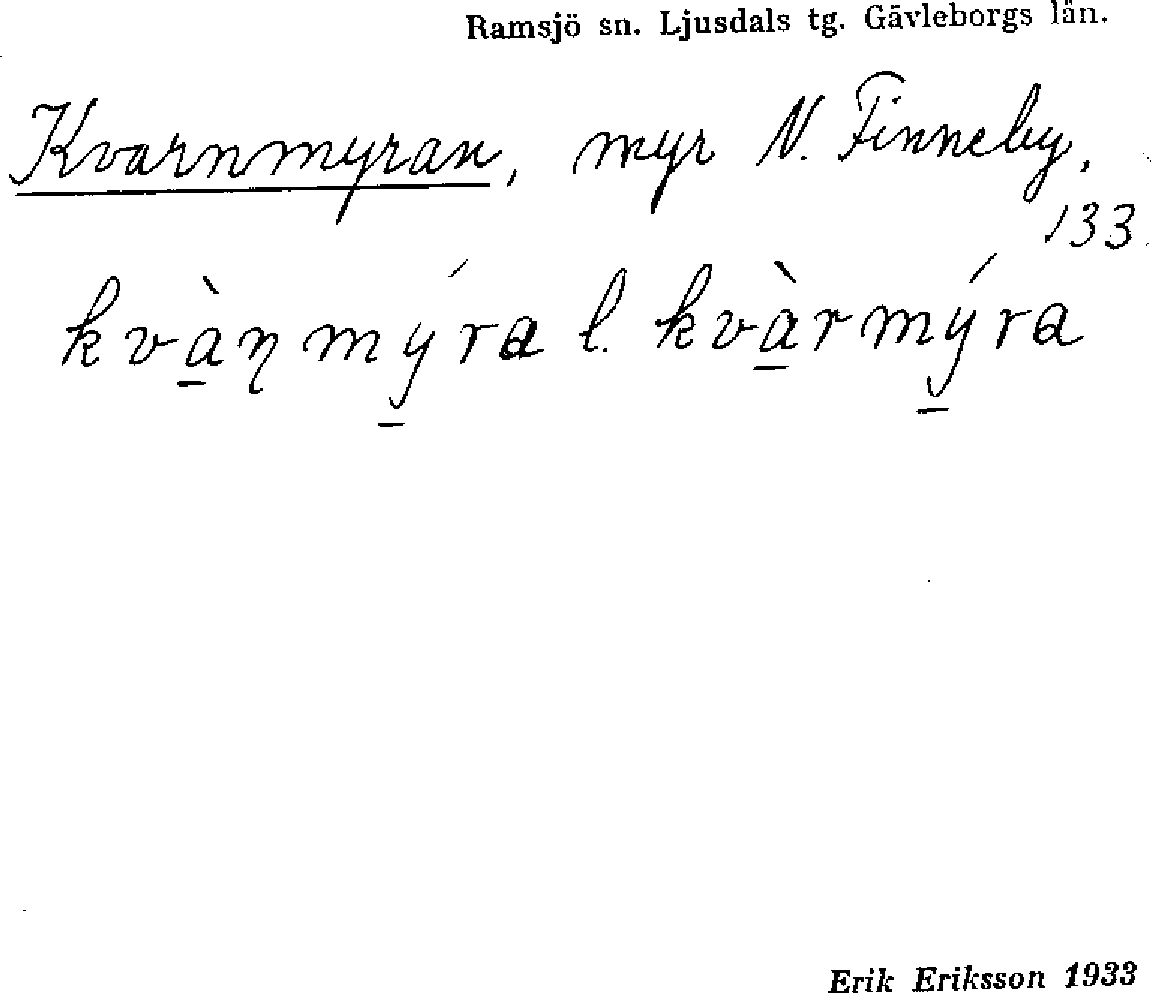 Ramsjö sn. Ljusdals tg. Gävleborgs län.
Kvarnmyran, myr N. Finneby,
133
kvà̱ɳmý̱ra l. kvà̱rmý̱ra
Erik Eriksson 1933